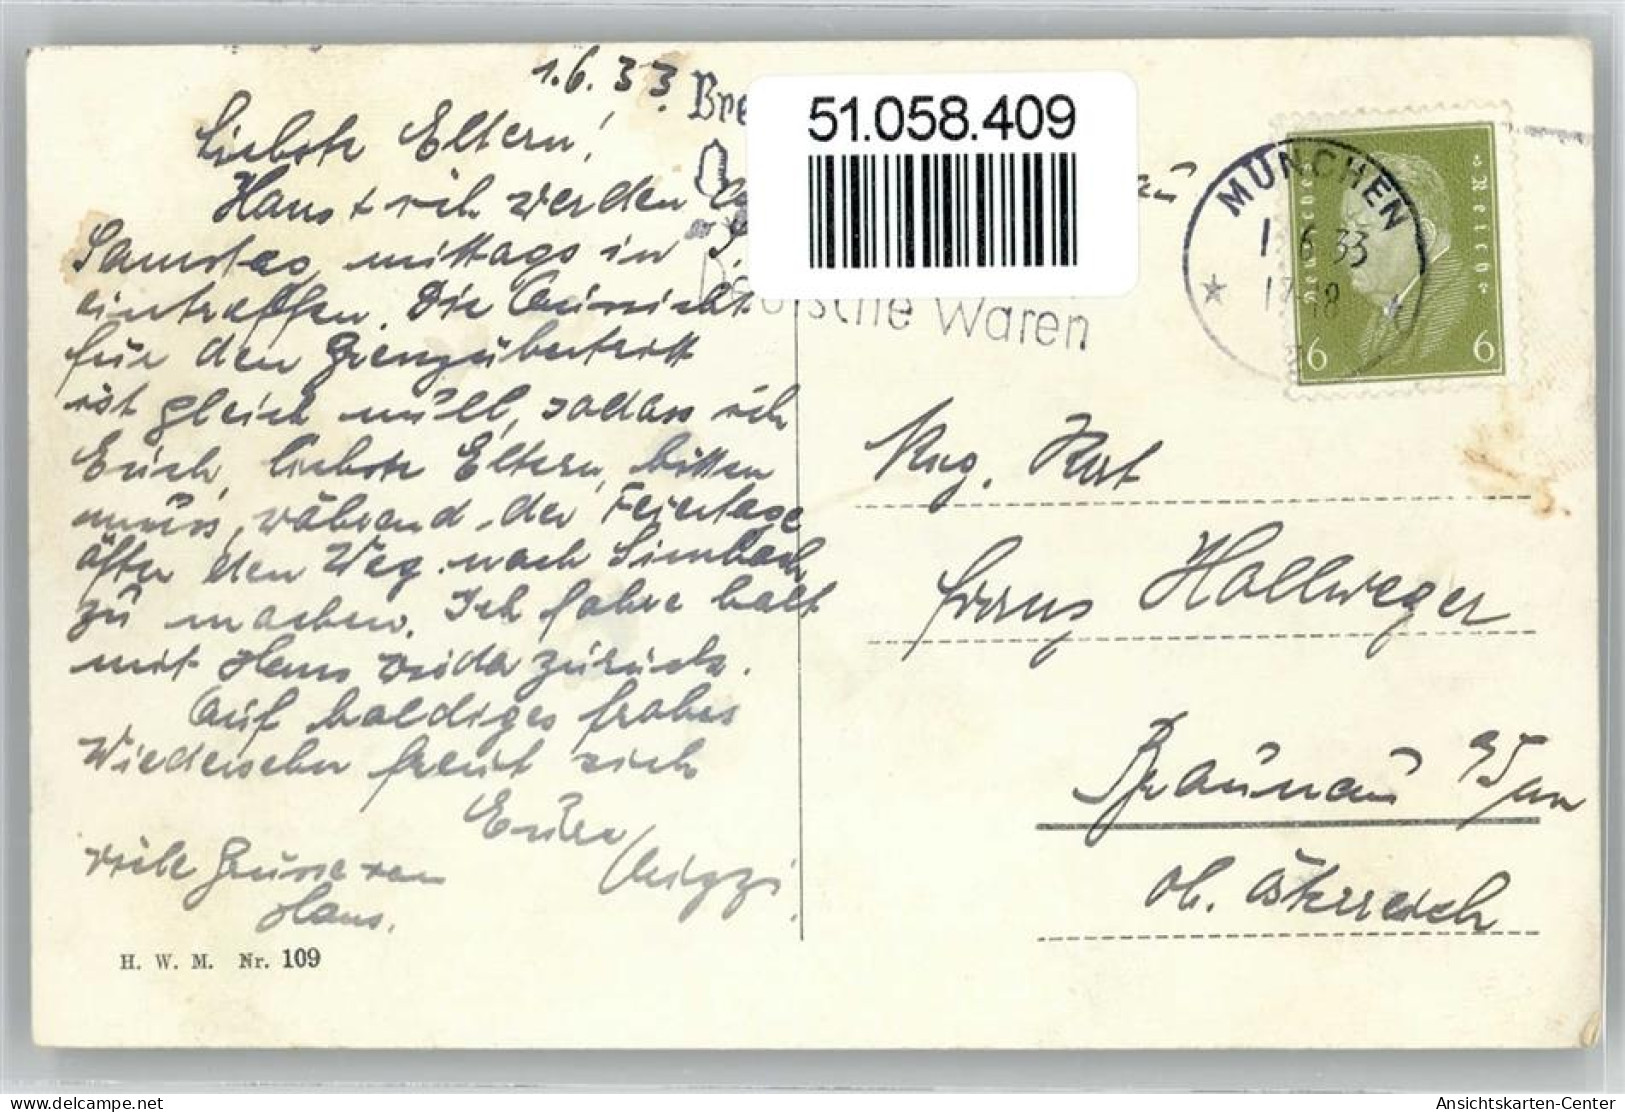 1.6.33.
Liebste Eltern!
Hans + ich werden
Samstag mittags in S.
eintreffen. Die Aussicht
für den Grenzübertritt
ist gleich null, sodass ich
Euch, liebste Eltern, bitten
muss, während der Feiertage
öfter den Weg nach Simbach
zu machen. Ich fahre halt
mit Hans wieder zurück.
Auf baldiges frohes
Wiedersehen freut sich
Eure
Mizzi.
viele Grüsse von
Hans.
H. W. M. Nr. 109
Bre
Deutsche Waren
51.058.409
MÜNCHEN
1 6 33
17-18
Deutsches Reich
6 6
Franz Hollweger
Braunau a/Inn
Ob. Österreich
Ansichtskarten-Center
delcampe.net